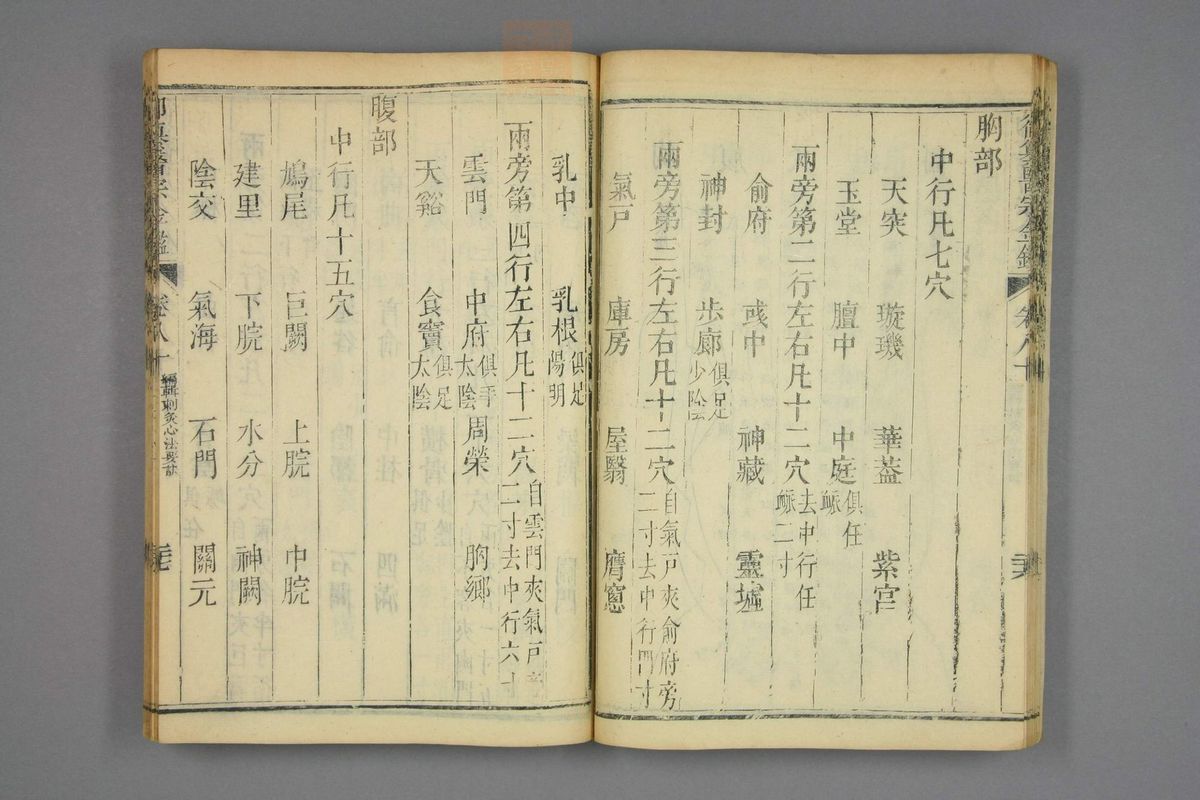 胸部
中行凡七穴
天突 璇璣 華葢 紫宫
玉堂 膻中 中庭俱任衇
兩旁第二行左右凡十二穴去中行任衇二寸
俞府 彧中 神藏 靈墟
神封 步廊俱足少陰
兩旁第三行左右凡十二穴自氣戸夾俞府旁二寸去中行四寸
氣戸 庫房 屋翳 膺窻
乳中 乳根俱足陽明
兩旁第四行左右凡十二穴自雲門夾氣戸旁二寸去中行六寸
雲門 中府俱手太陰 周榮 胸鄉
天谿 食竇俱足太陰
腹部
中行凡十五穴
鳩尾 巨闕 上脘 中脘
建里 下脘 水分 神闕
陰交 氣海 石門 關元
御纂醫宗金鑑 卷八十 編輯刺灸心法要訣